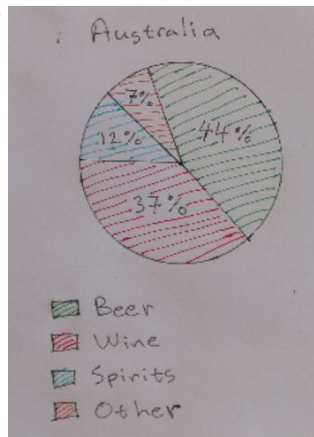 Australia
7%
44%
12%
37%
Beer
Wine
Spirits
Other